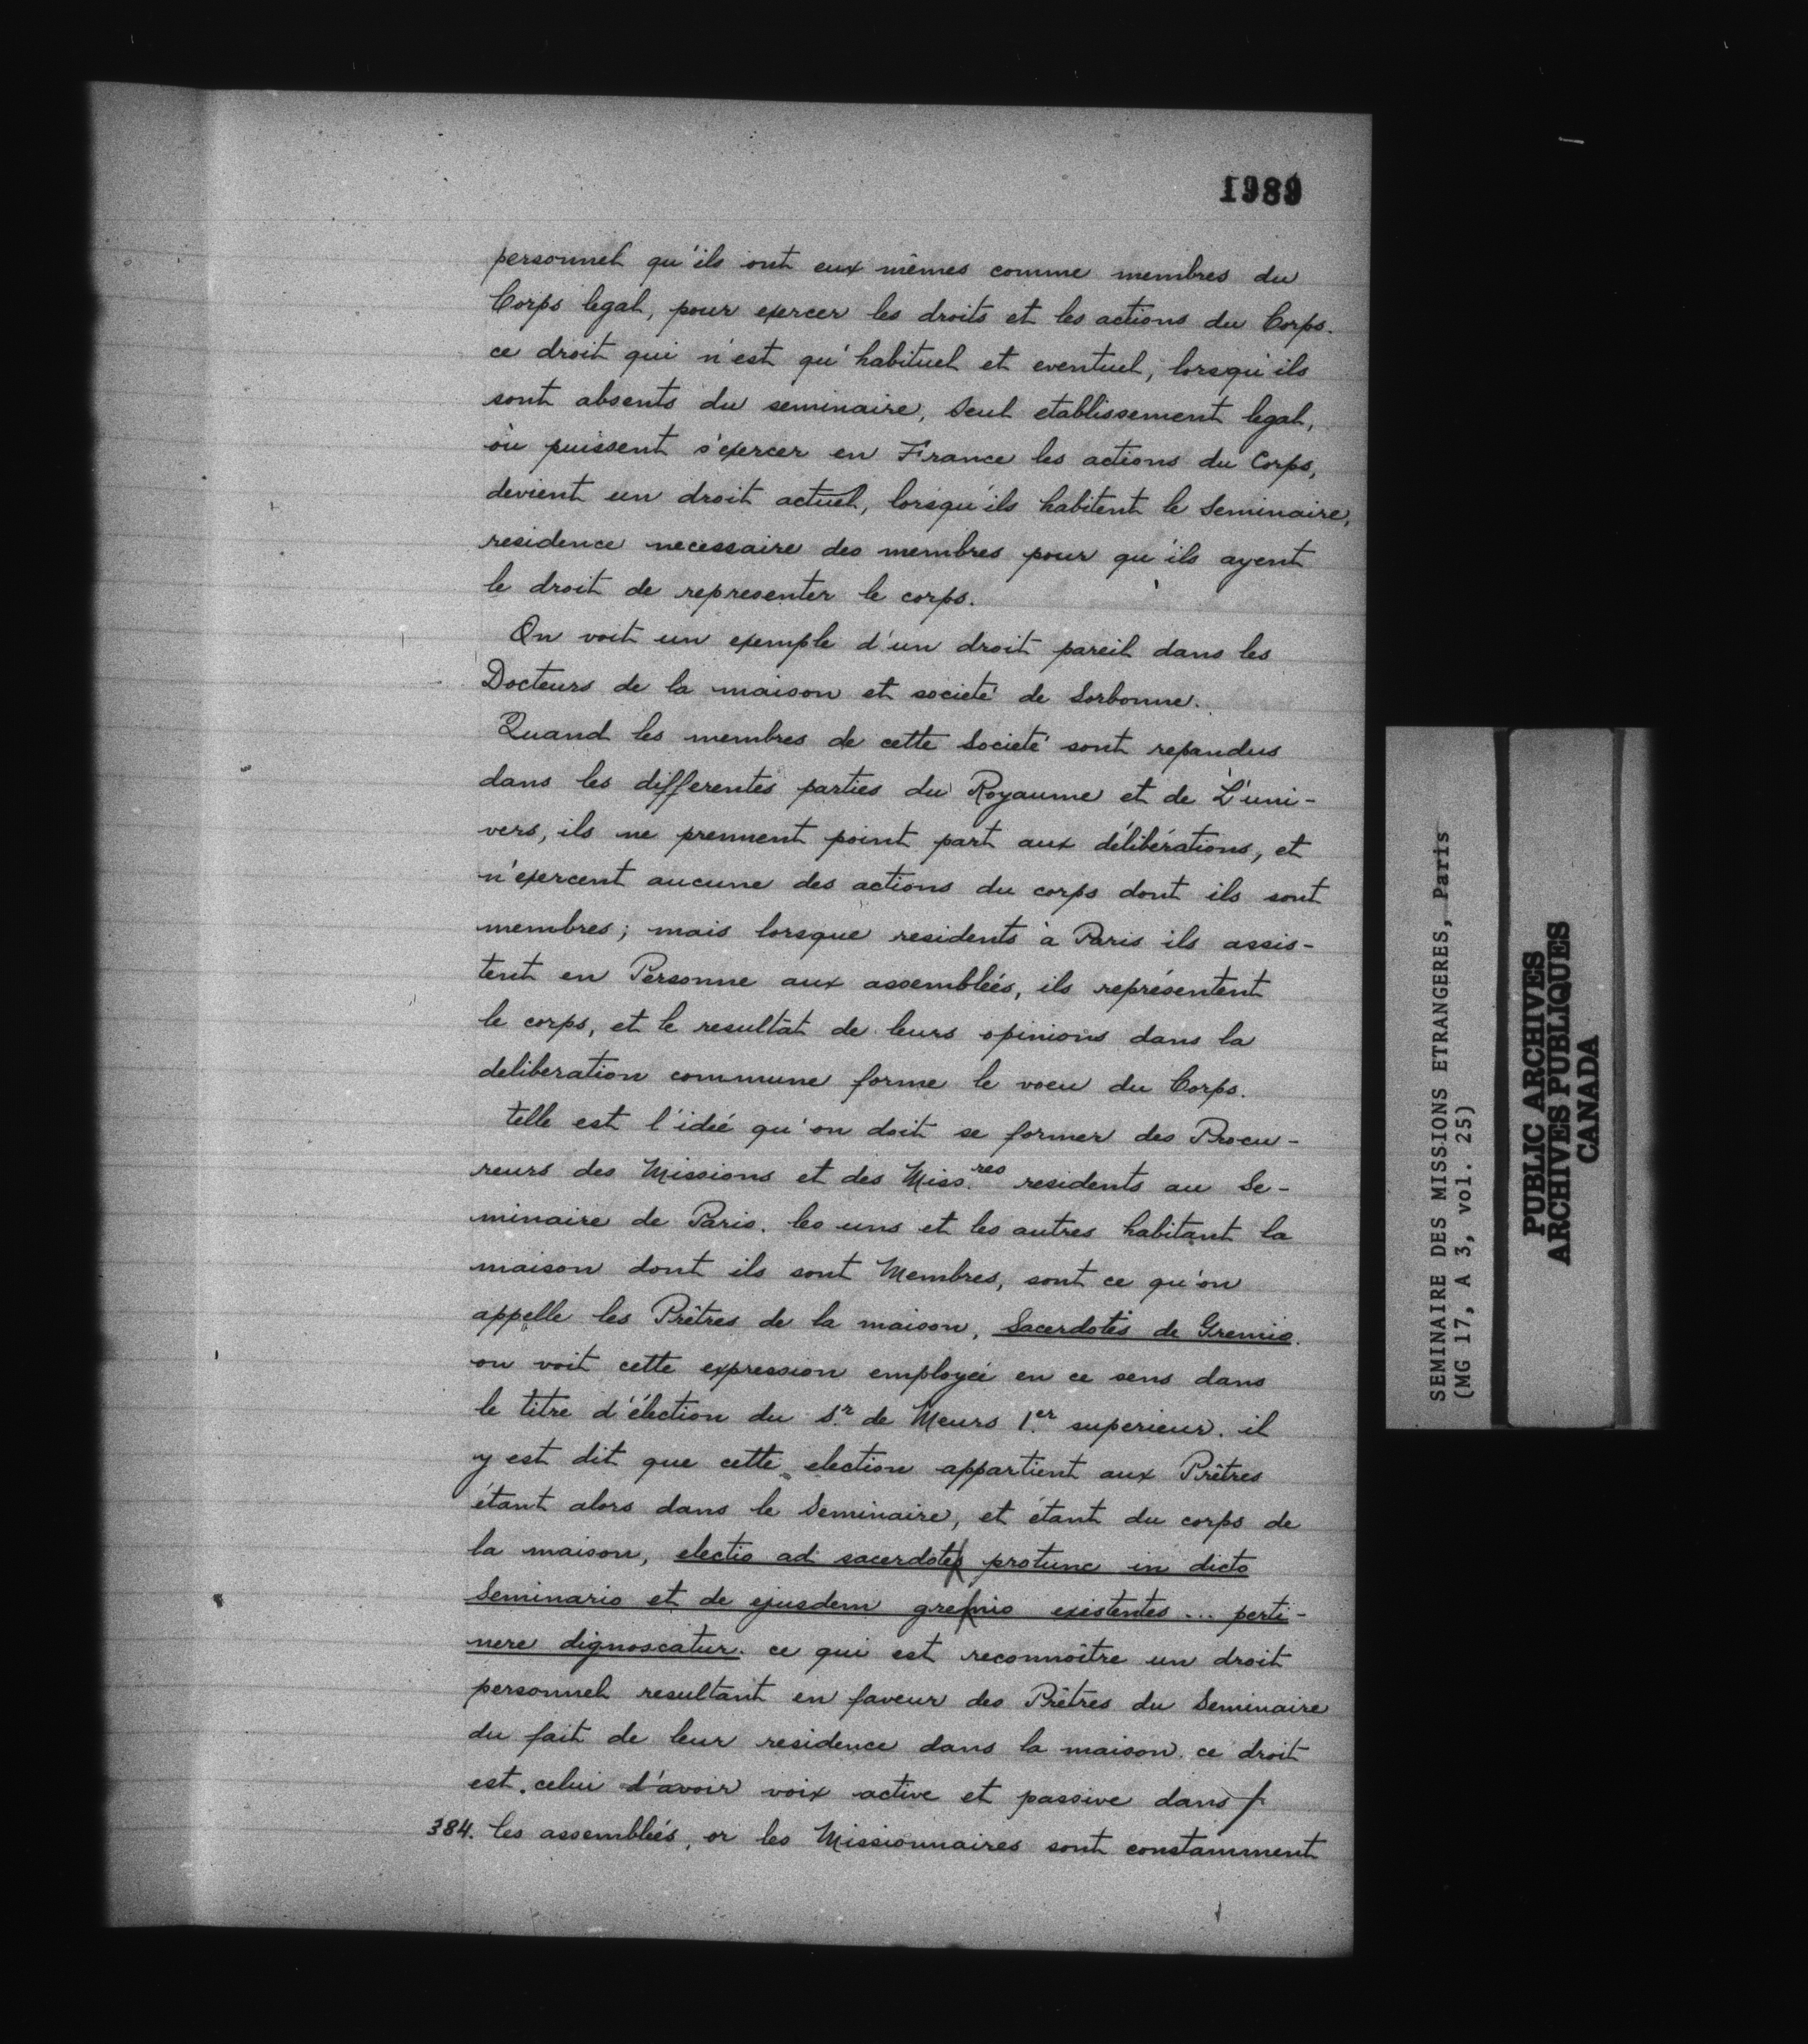 1989
personnel qu'ils ont eux mêmes comme membres du
Corps legal, pour exercer les droits et les actions du Corps.
ce droit qui n'est qu'habituel et eventuel, lorsqu'ils
sont absents du seminaire, seul etablissement legal,
où puissent s'exercer en France les actions du Corps,
devient un droit actuel, lorsqu'ils habitent le Seminaire,
residence necessaire des membres pour qu'ils ayent
le droit de representer le corps.
On voit un exemple d'un droit pareil dans les
Docteurs de la maison et societé de Sorbonne.
Quand les membres de cette Societé sont repandus
dans les differentes parties du Royaume et de L'uni-
vers, ils ne prennent point part aux délibérations, et
n'exercent aucune des actions du corps dont ils sont
membres; mais lorsque residents à Paris ils assis-
tent en Personne aux assemblées, ils représentent
le corps, et le resultat de leurs opinions dans la
deliberation commune forme le voeu du Corps.
telle est l'idée qu'on doit se former des Procu-
reurs des Missions et des Miss.res residents au Se-
minaire de Paris. les uns et les autres habitant la
maison dont ils sont Membres, sont ce qu'on
appelle les Prêtres de la maison, Sacerdotes de Gremio.
on voit cette expression employée en ce sens dans
le titre d'élection du Sr. de Meurs 1er. superieur. il
y est dit que cette election appartient aux Prêtres
étant alors dans le Seminaire, et étant du corps de
la maison, electio ad sacerdotes protunc in dicto
Seminario et de ejusdem gremio existentes ... perti-
nere dignoscatur. ce qui est reconnoître un droit
personnel resultant en faveur des Prêtres du Seminaire
du fait de leur residence dans la maison. ce droit
est celui d'avoir voix active et passive dans /
384. les assemblées, or les Missionnaires sont constamment
SEMINAIRE DES MISSIONS ETRANGERES, Paris
(MG 17, A 3, vol. 25)
PUBLIC ARCHIVES
ARCHIVES PUBLIQUES
CANADA